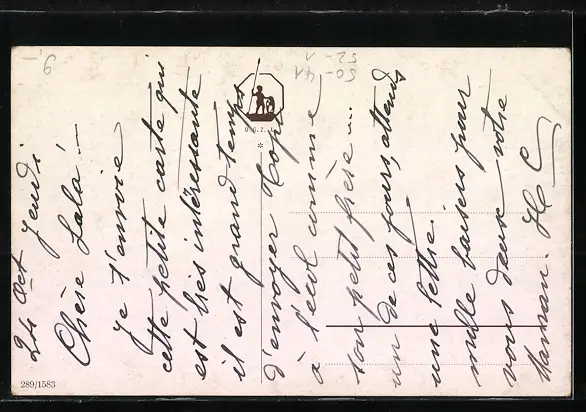 24 Oct Jeudi
Chère Lala! —
Je t'envoie
cette petite carte qui
est très intéressante
il est grand temps
d'envoyer
à l'école comme
ton petit frère ...
un de ces jours, attends
une lettre.
mille baisers pour
vous deux votre
Maman.
289/1583